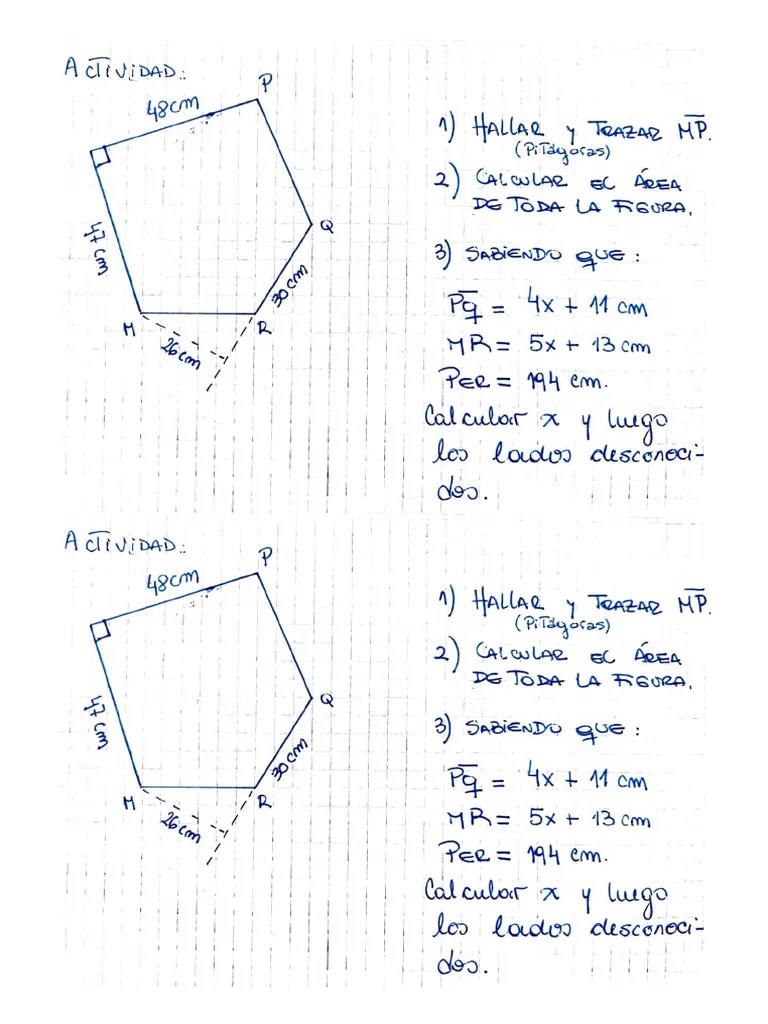 ACTIVIDAD:
P
48cm
47cm
Q
30cm
M
R
26cm
1) HALLAR y TRAZAR MP.
(Pitágoras)
2) CALCULAR EL ÁREA
DE TODA LA FIGURA.
3) SABIENDO QUE:
Pq = 4x + 11 cm
MR = 5x + 13 cm
PER = 194 cm.
Calcular x y luego
los lados desconoci-
dos.
ACTIVIDAD:
P
48cm
47cm
Q
30cm
M
R
26cm
1) HALLAR y TRAZAR MP.
(Pitágoras)
2) CALCULAR EL ÁREA
DE TODA LA FIGURA.
3) SABIENDO QUE:
Pq = 4x + 11 cm
MR = 5x + 13 cm
PER = 194 cm.
Calcular x y luego
los lados desconoci-
dos.